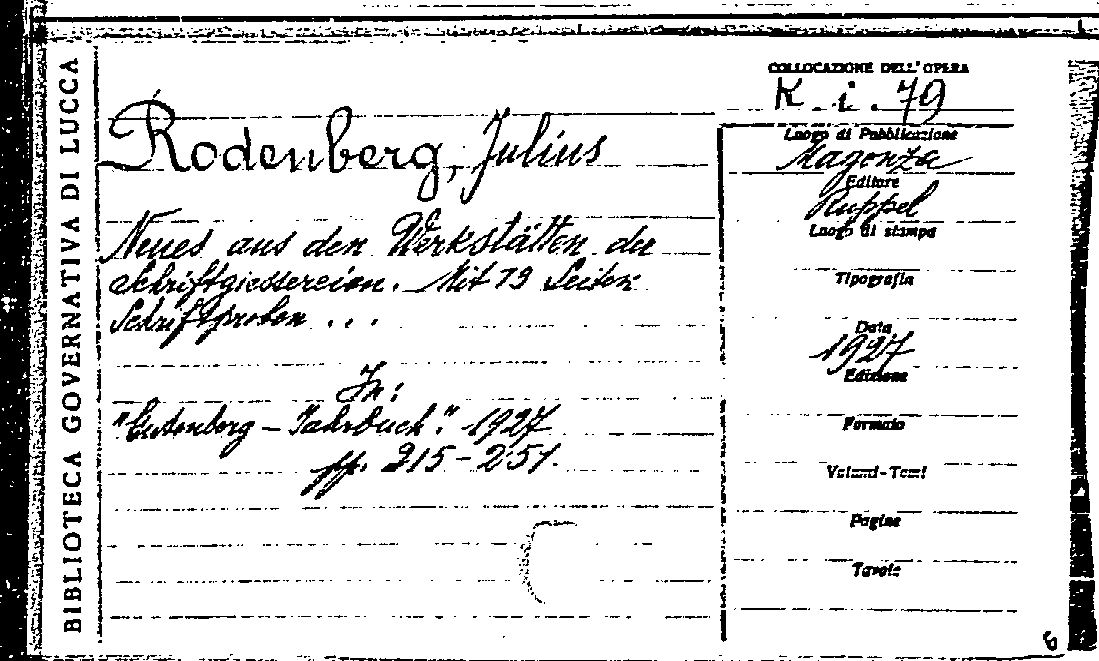 BIBLIOTECA GOVERNATIVA DI LUCCA
Rodenberg, Julius
Neues aus den Werkstätten der
Schriftgiessereien. Mit 79 Seiten
Schriftproben ...
In:
"Gutenberg - Jahrbuch". 1927
pp. 215-251.
COLLOCAZIONE DELL'OPERA
K. i. 79
Luogo di Pubblicazione
Magonza
Editore
Ruppel
Luogo di stampa
Tipografia
Data
1927
Edizione
Formato
Volumi-Tomi
Pagine
Tavole